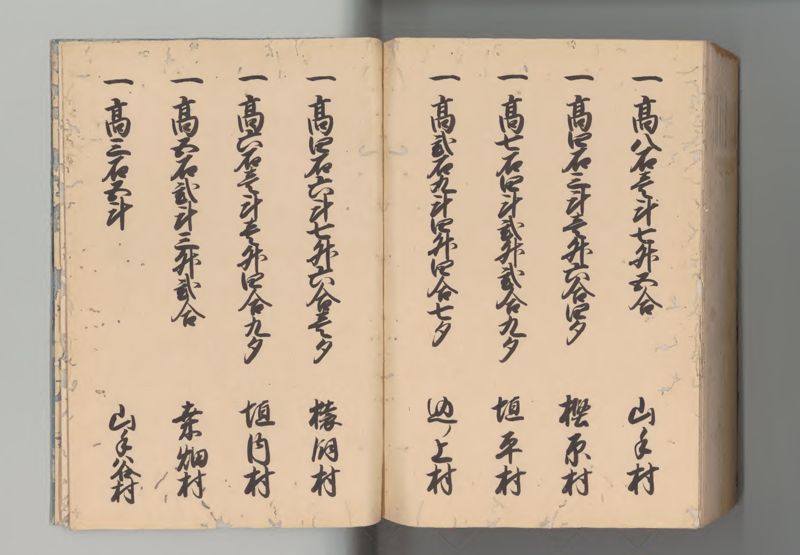 一 高八石壱斗七升五合 山手村
一 高四石三斗壱升六合四夕 樫原村
一 高七石四斗弐升弐合九夕 垣平村
一 高弐石九斗四升四合七夕 辺ノ上村
一 高四石六斗七升六合壱夕 村
一 高六石壱斗壱升四合九夕 垣内村
一 高五石弐斗三升弐合 桑畑村
一 高三石五斗 山手谷村